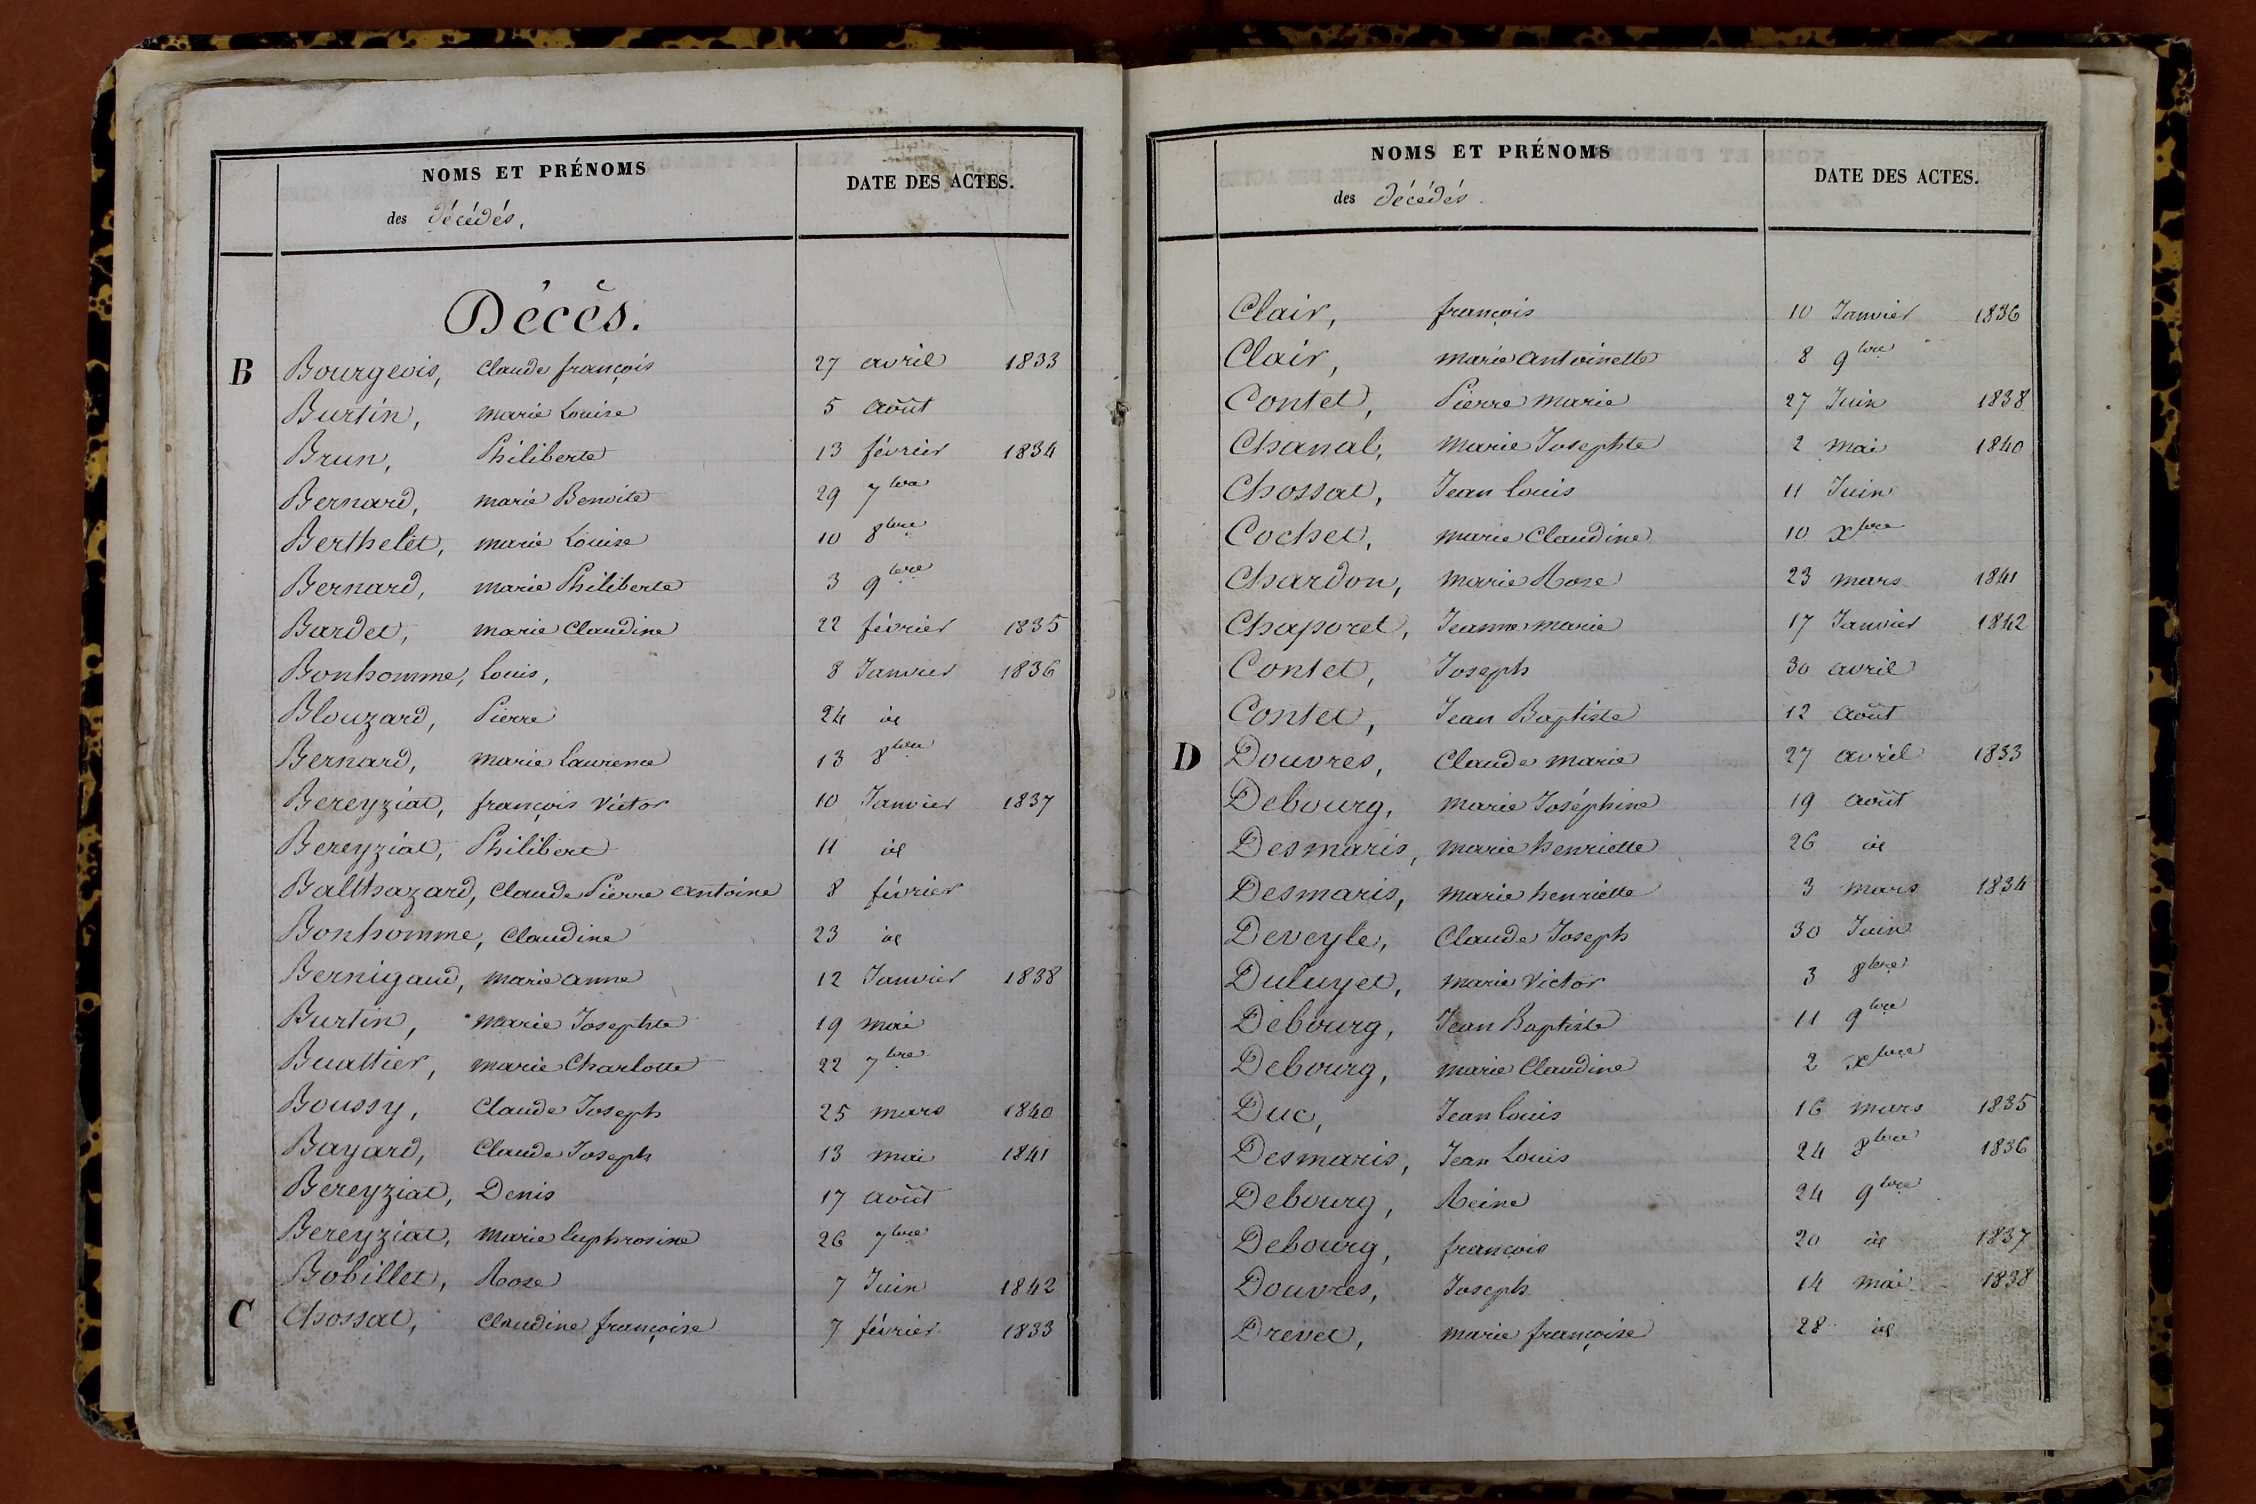 NOMS ET PRÉNOMS
des Décédés.
DATE DES ACTES.
Décès.
B Bourgeois, Claude françois 27 avril 1833
Burtin, marie Louise 5 Août
Brun, Philiberte 13 février 1834
Bernard, marie Benoite 29 7bre
Berthelet, marie Louise 10 8bre
Bernard, marie Philiberte 3 9bre
Bardet, marie Claudine 22 février 1835
Bonhomme, Louis, 8 Janvier 1836
Blouzard, Pierre 24 id
Bernard, marie Laurence 13 8bre
Bereyziat, françois Victor 10 Janvier 1837
Bereyziat, Philibert 11 id
Balthazard, Claude Pierre Antoine 8 février
Bonhomme, Claudine 23 id
Bernigaud, marie anne 12 Janvier 1838
Burtin, marie Josephte 19 mai
Buattier, marie Charlotte 22 7bre
Boussy, Claude Joseph 25 mars 1840
Bayard, Claude Joseph 13 mai 1841
Bereyziat, Denis 17 août
Bereyziat, Marie Euphrosine 26 7bre
Bobillet, Rose 7 Juin 1842
C Chossat, Claudine françoise 7 février 1833
NOMS ET PRÉNOMS
des Décédés.
DATE DES ACTES.
Clair, françois 10 Janvier 1836
Clair, marie Antoinette 8 9bre
Contet, Pierre marie 27 Juin 1838
Chanal, Marie Josephte 2 mai 1840
Chossat, Jean Louis 11 Juin
Cochet, marie Claudine 10 Xbre
Chardon, Marie Rose 23 mars 1841
Chaporet, Jeanne marie 17 Janvier 1842
Contet, Joseph 30 avril
Contet, Jean Baptiste 12 Août
D Douvres, Claude marie 27 avril 1833
Debourg, Marie Joséphine 19 août
Desmaris, marie henriette 26 id
Desmaris, marie henriette 3 mars 1834
Deveyle, Claude Joseph 30 Juin
Duluyet, marie Victor 3 8bre
Debourg, Jean Baptiste 11 9bre
Debourg, marie Claudine 2 Xbre
Duc, Jean Louis 16 mars 1835
Desmaris, Jean Louis 24 8bre 1836
Debourg, Reine 24 9bre
Debourg, françois 20 id 1837
Douvres, Joseph 14 mai 1838
Drevet, marie françoise 28 id